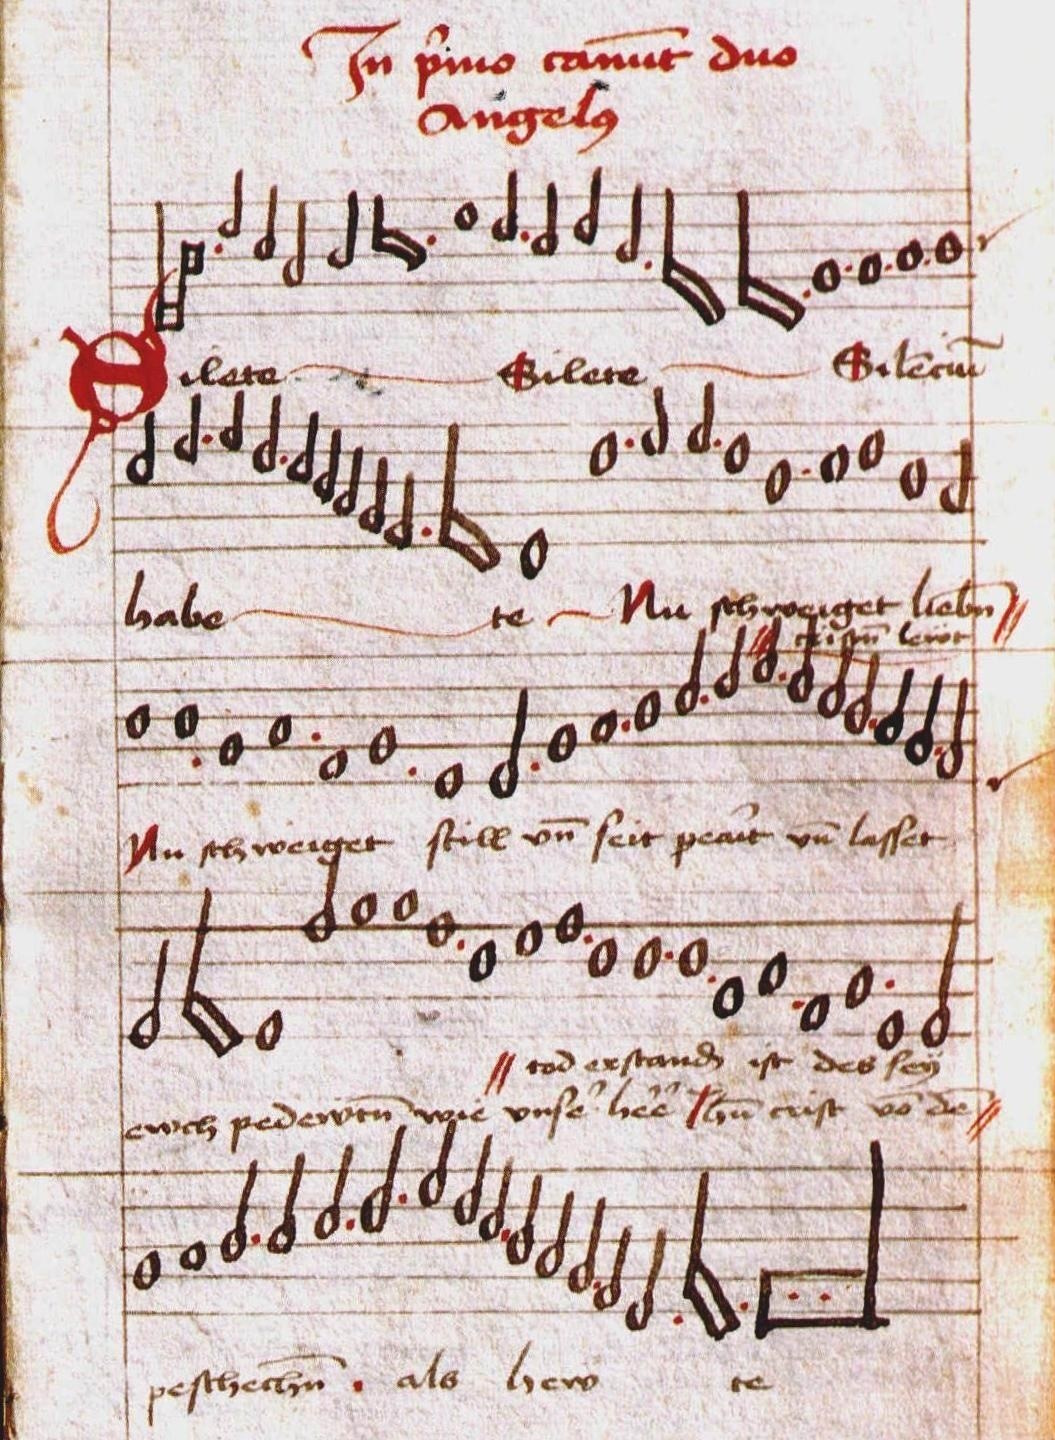 In p̄mo canūt duo
Angelꝯ
Silete Silete Silēciū
habe te Nu schweiget liebn̄
cristn̄ lewt
Nu schweiget still vn̄ seit vn̄ lasset
tod erstandn̄ ist des sey
ewch pedewtn̄ wie vnser her Jhū crist vō dē
peschechn̄ . als hew te